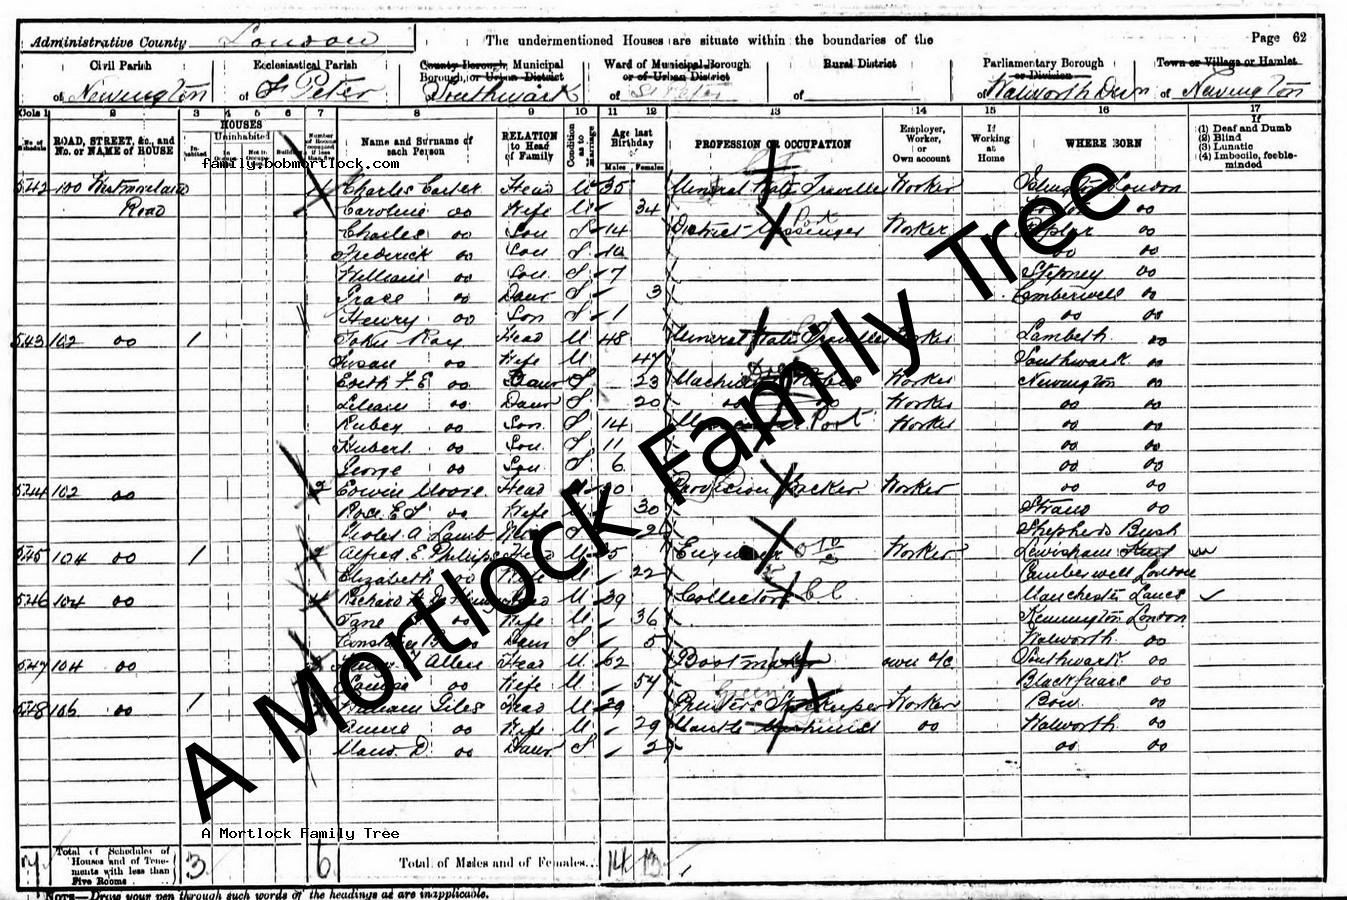 Administrative County London The undermentioned Houses are situate within the boundaries of the Page 62
Civil Parish Ecclesiastical Parish County Borough, Municipal Borough, or Urban District Ward of Municipal Borough or of Urban District Rural District Parliamentary Borough or Division Town or Village or Hamlet
of Newington of St Peter Southwark of St Peter of of Walworth Divn of Newington
Cols 1 2 3 4 5 6 7 8 9 10 11 12 13 14 15 16 17
ROAD, STREET, &c., and No. or NAME of HOUSE HOUSES Uninhabited Name and Surname of each Person RELATION to Head of Family Condition as to Marriage Age last Birthday Males Females PROFESSION OR OCCUPATION Employer, Worker, or Own account If Working at Home WHERE BORN If (1) Deaf and Dumb (2) Blind (3) Lunatic (4) Imbecile, feeble-minded
family.bobmortlock.com
542 100 Westmoreland Charles Carter Head M 35 Mineral Water Traveller Worker Islington London
Road Caroline do Wife M 34 do
Charles do Son S 14 District Messenger Worker Poplar do
Frederick do Son S 10 do do
William do Son S 7 Stepney do
Grace do Daur S 3 Camberwell do
Henry do Son S 1 do do
543 102 do 1 Ray Head M 48 Mineral Water Traveller Worker Lambeth do
Susan do Wife M 47 Southwark do
Edith F. E do Daur S 23 Worker Newington do
Lilian do Daur S 20 do do Worker do do
Ruben do Son S 14 Worker do do
Hubert do Son S 11 do do
George do Son S 6 do do
544 102 do 2 Edwin Moore Head 30 Provision Packer Worker do do
Rose E do Wife 30 Strand do
Violet A Lamb S 2 Shepherds Bush
545 104 do 1 Alfred E Phillips Head M Engineer Worker Lewisham Kent
Elizabeth do Wife 22 Camberwell London
546 104 do 4 Richard Head M 39 Collector Manchester Lancs
Jane do Wife M 36 Kennington London
Constance do Daur S 5 Walworth do
547 104 do Allen Head M 62 Bootmaker own a/c Southwark do
Louisa do Wife M 54 Blackfriars do
548 106 do 1 William Giles Head M 29 Printers Storekeeper Worker Bow do
do Wife M 29 Mantle Machinist do Walworth do
Maud D. do Daur S 2 do do
A Mortlock Family Tree
A Mortlock Family Tree
7 Total of Schedules of Houses and of Tenements with less than Five Rooms 3 6 Total of Males and of Females... 14 13
NOTE—Draw your pen through such words of the headings as are inapplicable.